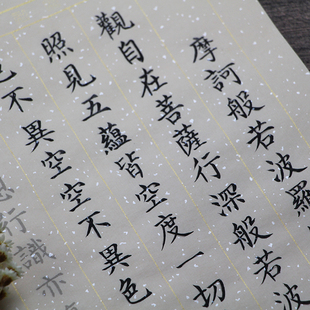 摩訶般若波羅
觀自在菩薩行深般若波
照見五蘊皆空度一切
色不異空空不異色
行識亦